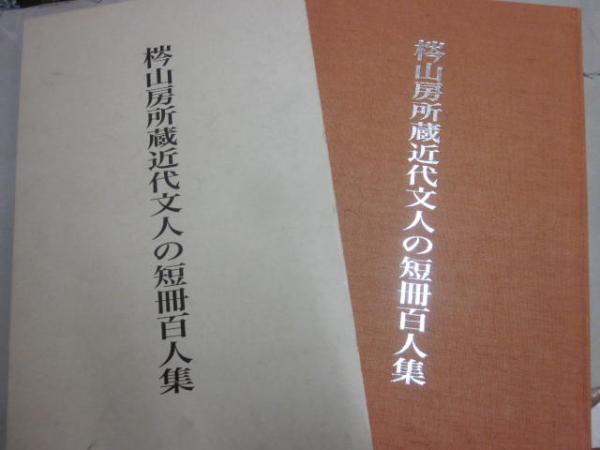 梣山房所蔵近代文人の短冊百人集
梣山房所蔵近代文人の短冊百人集